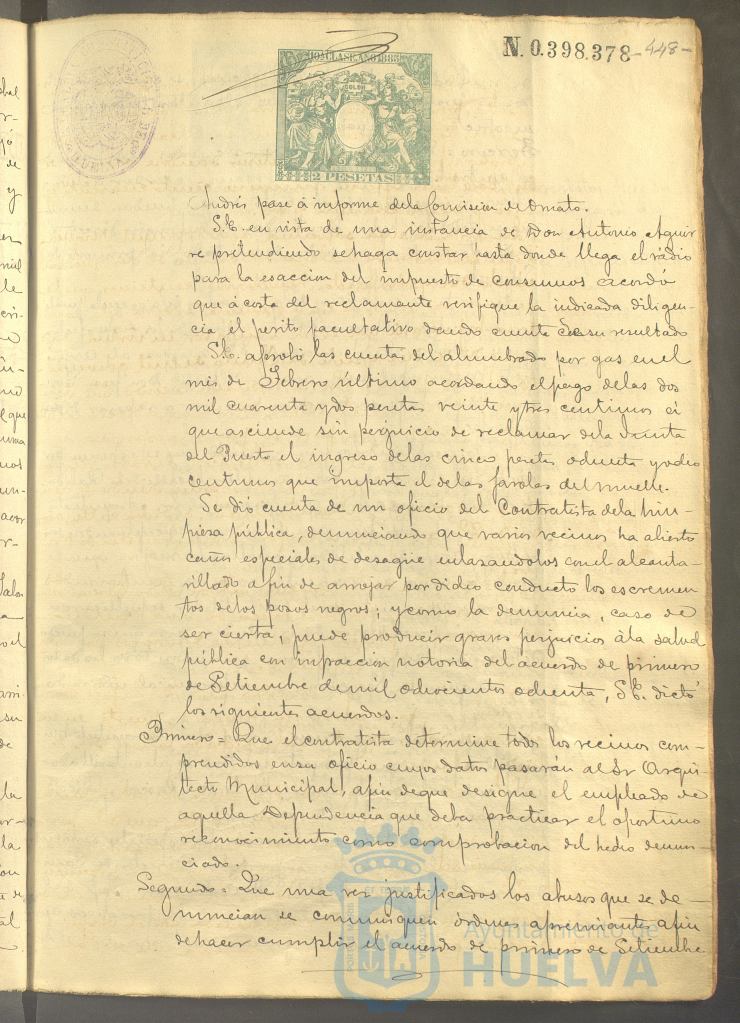 N. 0.398.378 -448-
10ª CLASE. AÑO 1883
COLON
2 PESETAS
Andrés pase á informe de la Comision de Ornato.
S.E. en vista de una instancia de Don Antonio Aguir
re pretendiendo se haga constar hasta donde llega el rádio
para la esaccion del impuesto de consumos acordó
que á costa del reclamante verifique la indicada diligen-
cia el perito facultativo dando cuenta de su resultado
S.E. aprobó las cuentas del alumbrado por gas en el
mes de Febrero último acordando el pago de las dos
mil cuarenta y dos pesetas veinte y tres centimos á
que asciende sin perjuicio de reclamar de la Junta
del Puerto el ingreso de las cinco pesetas ochenta y ocho
centimos que importa el de las farolas del muelle.
Se dió cuenta de un oficio del Contratista de la lim-
pieza pública, denunciando que varios vecinos ha abierto
caños especiales de desagüe enlazandolos con el alcanta-
rillado a fin de arrojar por dicho conducto los escremen-
tos de los pozos negros; y como la denuncia, caso de
ser cierta, puede producir graves perjuicios á la salud
pública con infraccion notoria del acuerdo de primero
de Setiembre de mil ochocientos ochenta, S.E. dictó
los siguientes acuerdos.
Primero = Que el contratista determine todos los vecinos com-
prendidos en su oficio cuyos datos pasarán al Sr Arqui-
tecto Municipal, a fin de que designe el empleado de
aquella Dependencia que deba practicar el oportuno
reconocimiento como comprobacion del hecho denun-
ciado.
Segundo = Que una vez justificados los abusos que se de-
nuncian se comuniquen órdenes apremiantes a fin
de hacer cumplir el acuerdo de primero de Setiembre
Ayuntamiento de
HUELVA